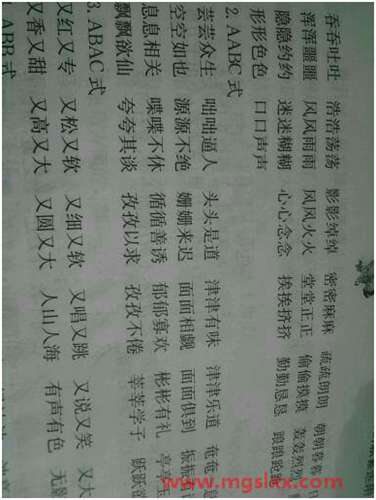 吞吞吐吐 浩浩荡荡 影影绰绰 密密麻麻 疏疏朗朗 朝朝暮暮
浑浑噩噩 风风雨雨 风风火火 堂堂正正 偷偷摸摸 轰轰烈烈
隐隐约约 迷迷糊糊 心心念念 挨挨挤挤 勤勤恳恳
形形色色 口口声声
2. AABC 式
芸芸众生 咄咄逼人 头头是道 津津有味 津津乐道 奄奄一息
空空如也 源源不绝 姗姗来迟 面面相觑 面面俱到 振振有
息息相关 喋喋不休 循循善诱 郁郁寡欢 彬彬有礼 亭亭玉
飘飘欲仙 夸夸其谈 孜孜以求 孜孜不倦 莘莘学子 跃跃欲
3. ABAC 式
又红又专 又松又软 又细又软 又唱又跳 又说又笑 又大
又香又甜 又高又大 又圆又大 人山人海 有声有色 无影
ABB 式
www.mgslax.com